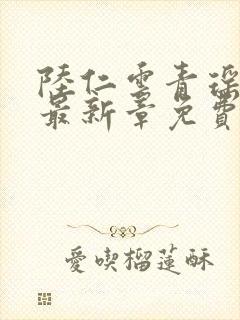 陸仁雲青瑶
最新章免費
愛喫榴蓮酥